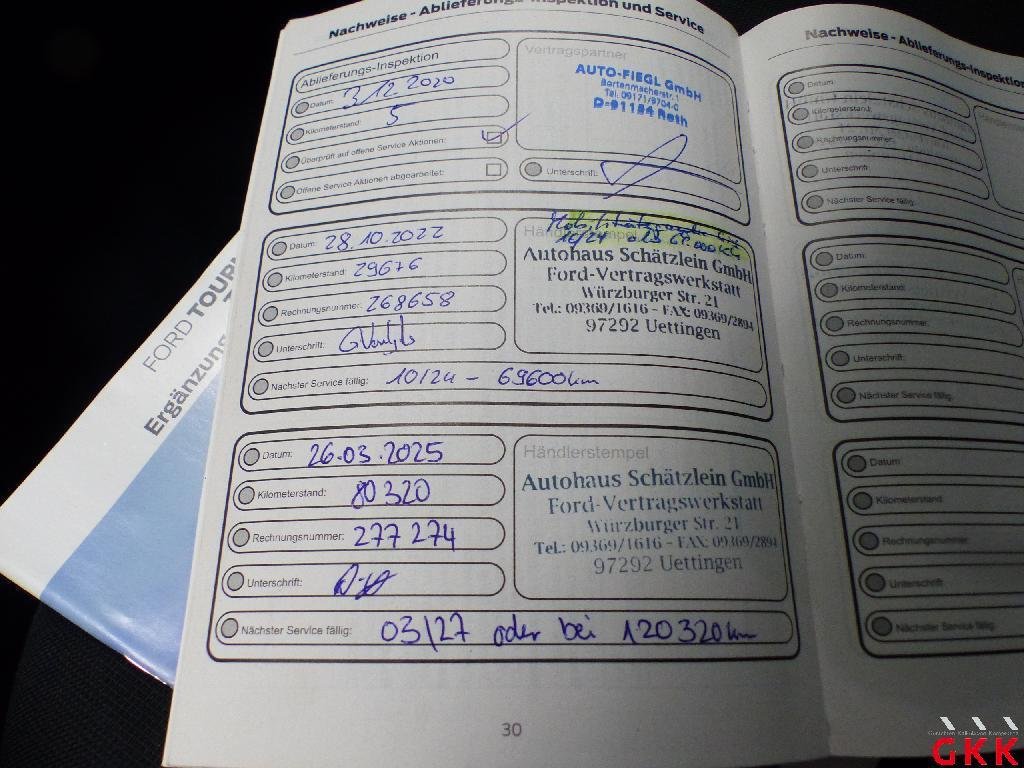 Nachweise - Ablieferungs-Inspektion und Service
Ablieferungs-Inspektion
Datum: 3.12.2020
Kilometerstand: 5
Überprüft auf offene Service Aktionen:
Offene Service Aktionen abgearbeitet:
Vertragspartner
AUTO-FIEGL GmbH
Bortenmacherstr. 1
Tel. 09171/9704-0
D-91154 Roth
Unterschrift:
Datum: 28.10.2022
Kilometerstand: 29676
Rechnungsnummer: 268658
Unterschrift:
Nächster Service fällig: 10/24 - 69600km
Händlerstempel
Autohaus Schätzlein GmbH
Ford-Vertragswerkstatt
Würzburger Str. 21
Tel.: 09369/1616 - FAX: 09369/2894
97292 Uettingen
Datum: 26.03.2025
Kilometerstand: 80320
Rechnungsnummer: 277274
Unterschrift:
Nächster Service fällig: 03/27 oder bei 120320km
Händlerstempel
Autohaus Schätzlein GmbH
Ford-Vertragswerkstatt
Würzburger Str. 21
Tel.: 09369/1616 - FAX: 09369/2894
97292 Uettingen
30
Nachweise - Ablieferungs-Inspektion
Datum:
Kilometerstand:
Rechnungsnummer:
Unterschrift:
Nächster Service fällig:
Datum:
Kilometerstand:
Rechnungsnummer:
Unterschrift:
Nächster Service fällig:
Datum:
Kilometerstand:
Rechnungsnummer:
Unterschrift:
Nächster Service fällig:
FORD TOUR
Ergänzung
GKK